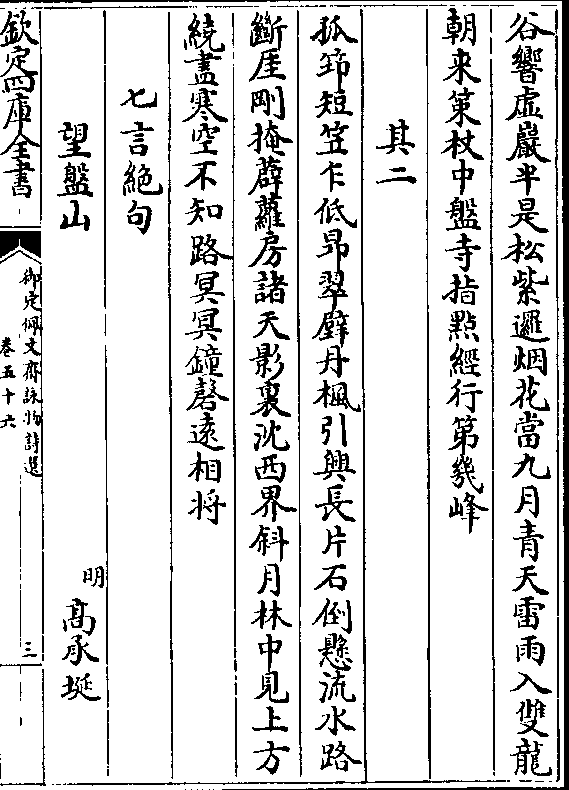 谷響虚巖半是松紫邏烟花當九月青天雷雨入雙龍
朝来策杖中盤寺指㸃經行第幾峰
其二
孤筇短笠乍低昻翠壁丹楓引興長片石倒懸流水路
斷厓剛掩薜蘿房諸天影裏沈西界斜月林中見上方
繞盡寒空不知路冥冥鐘磬遠相將
七言絶句
望盤山
明
高承埏
欽定四庫全書
御定佩文齋詠物詩選
卷五十六
三